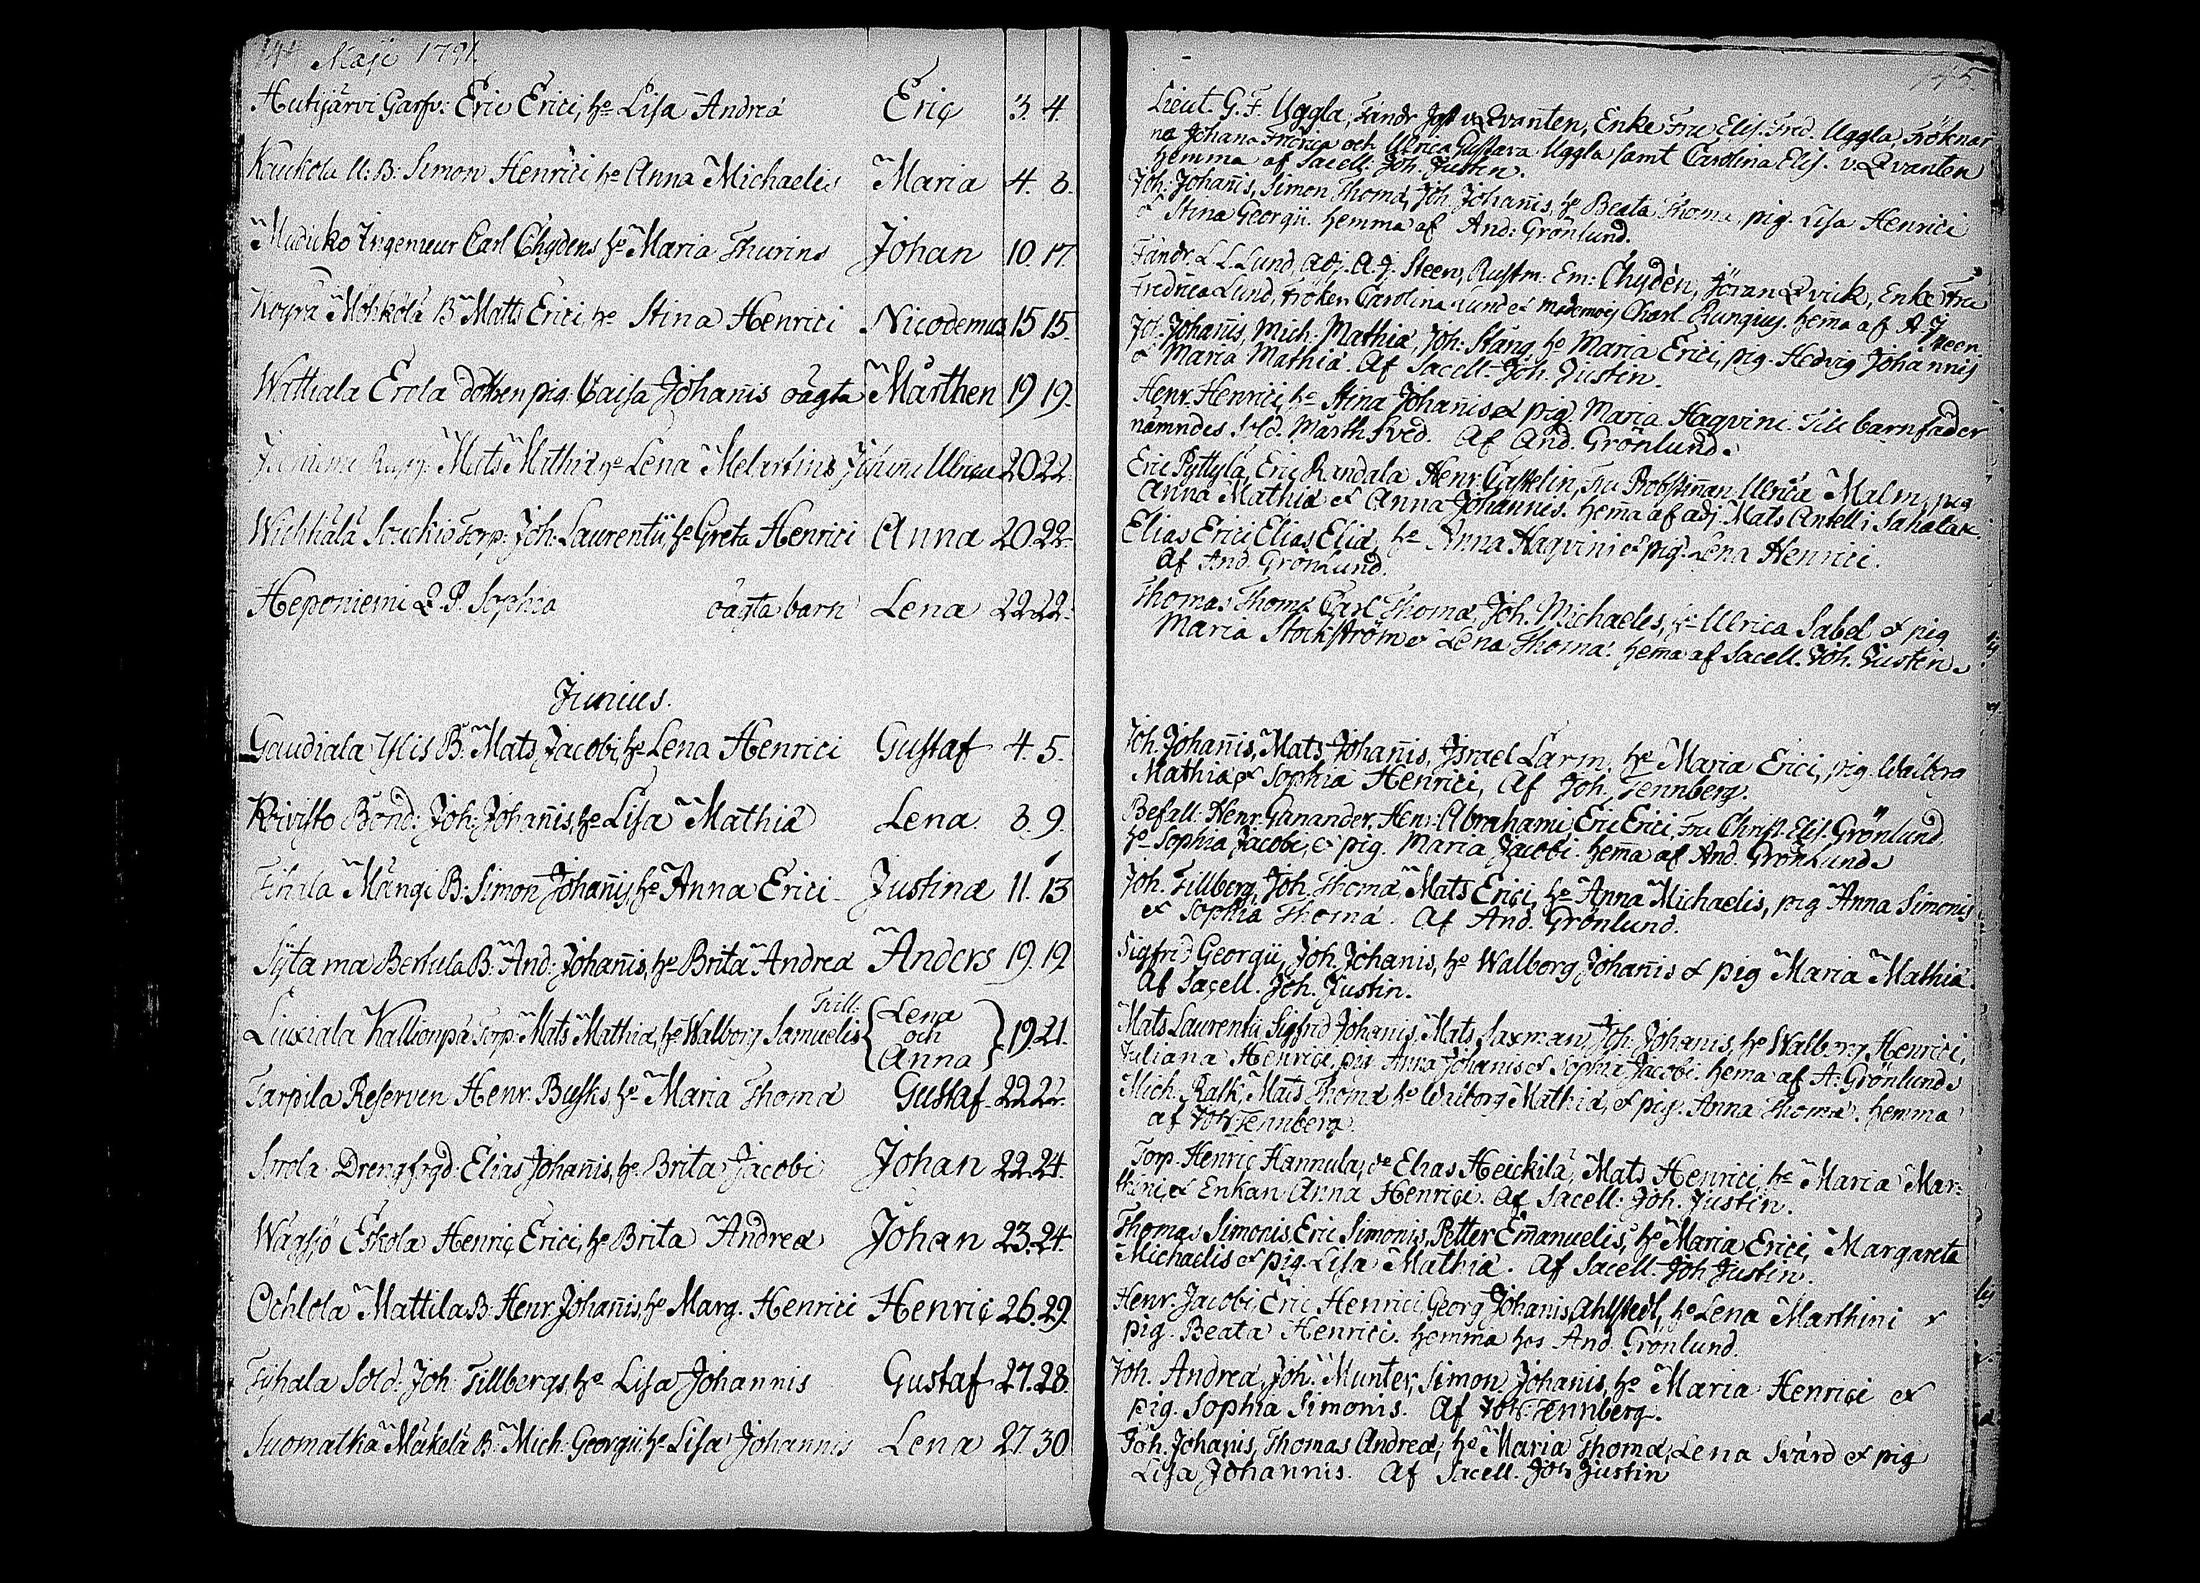 144 Maji 1791.
Hutijärvi Garfv: Eric Erici, hu Lisa Andreæ Eric 3. 4.
Kaukola U: B: Simon Henrici hu Anna Michaelis Maria 4. 8.
Ingenieur Carl Chydens hu Maria Thurins Johan 10. 17.
Mohkola B: Matts Erici, hu Stina Henrici Nicodemus 15 15.
Erola dottren pig. Caisa Johañis oägta Mårthen 19 19.
Mats Mathiæ hu Lena Melartins Ulrica 20. 22.
Torp: Joh: Laurentii, hu Greta Henrici Anna 20. 22.
Heponiemi Q. P. Sophia oägta barn Lena 22. 22.
Junius.
Gaudiala Ylis B: Mats Jacobi, hu Lena Henrici Gustaf 4. 5.
Koivisto Bond: Joh: Johañis, hu Lisa Mathiæ Lena 8. 9.
Mangi B: Simon Johañis, hu Anna Erici Justina 11. 13
Bertula B: And: Johañis, hu Brita Andreæ Anders 19. 19.
Liuxiala Kallionpä Torp: Mats Mathiæ, hu Walborg Samuelis Tvill: Lena och Anna 19. 21.
Tarpila Reserven Henr: Busks hu Maria Thomæ Gustaf 22. 22.
Drengfogd: Elias Johañis, hu Brita Jacobi Johan 22. 24.
Wägsjö Eskola Henric Erici, hu Brita Andreæ Johan 23. 24.
Ochtola Mattila B: Henr: Johañis, hu Marg. Henrici Henric 26. 29.
Tihala Sold: Joh: Tillbergs, hu Lisa Johannis Gustaf 27. 28.
Suomatka Mäkelä B: Mich: Georgii, hu Lisa Johannis Lena 27. 30
145
Lieut. G. F. Uggla, Fändr v. Qvanten, Enke Fru Elis. Fred. Uggla, Fröknar
na Johana Fredrica och Ulrica Gustava Uggla samt Carolina Elis. v. Qvanten
hemma af Sacell: Joh. Justin.
Joh: Johañis, Simon Thomæ, Joh. Johañis, hu Beata Thomæ, pig. Lisa Henrici
& Stina Georgii. hemma af And: Grönlund.
Fändr. L. L. Lund, Adj. A. J. Steen, Rustm. Em: Chydén, Jöran Qvick, Enke Fru
Fredrica Lund, Fröken Carolina Lund & Mademois Charl. hema af A. J. Steen.
Joh: Johañis, Mich: Mathiæ, Joh: Stång, hu Maria Erici, pig. Hedvig Johannis
& Maria Mathiæ. Af Sacell. Joh. Justin.
Henr: Henrici, hu Stina Johañis & pig. Maria Hagvini. Till barnfader
nämndes Sold. Mårth Sved. Af And. Grönlund.
Eric Pyttylä, Eric Randala Henr: Castelin, Fru Probstinnan Ulrica Malm, pig
Anna Mathiæ & Anna Johannis. hema af adj. Mats Antell i Sahalax.
Elias Erici Elias Eliæ, hu Anna Hagvini & pig. Lena Henrici.
Af And. Grönlund.
Thomas Thomæ Carl Thomæ, Joh. Michaelis, hu Ulrica Sabel & pig
Maria Stockström & Lena Thomæ. hema af Sacell. Joh. Justin.
Joh. Johañis, Mats Johañis, Israel Larm, hu Maria Erici, pig. Walborg
Mathiæ & Sophia Henrici, Af Joh. Tennberg.
Befall. Henr: Ganander, Henr: Abrahami, Eric Erici, Fru Christ. Elis. Grönlund,
hu Sophia Jacobi, & pig. Maria Jacobi. hema af And. Grönlund.
Joh. Tillberg, Joh. Thomæ, Mats Erici, hu Anna Michaelis, pig Anna Simonis
& Sophia Thomæ. Af And. Grönlund.
Sigfrid Georgii, Joh Johanis, hu Walborg Johañis & pig Maria Mathiæ.
Af Sacell. Joh. Justin.
Mats Laurentii Sigfrid Johanis, Mats Saxman, Joh. Johanis, hu Walborg Henrici,
Juliana Henrici, pig Anna Johanis & Sophia Jacobi. hema af A: Grönlund.
Mich: Mats Thomæ hu Walborg Mathiæ, & pig. Anna Thomæ. hemma
af Joh Tennberg.
Torp. Henric Hannula, do Elias Heickilä, Mats Henrici, hu Maria Mar=
thini, & Enkan Anna Henrici. Af Sacell: Joh. Justin.
Thomas Simonis, Eric Simonis, Petter Emanuelis, hu Maria Erici, Margareta
Michaelis & pig. Lisa Mathiæ. Af Sacell. Joh Justin.
Henr. Jacobi Eric Henrici, Georg Johanis Ahlstedt, hu Lena Marthini &
pig. Beata Henrici. hemma hos And. Grönlund.
Joh. Andreæ, Joh. Munter, Simon Johanis, hu Maria Henrici &
pig. Sophia Simonis. Af Joh Tennberg.
Joh. Johanis, Thomas Andreæ, hu Maria Thomæ, Lena Svärd & pig
Lisa Johannis. Af Sacell. Joh Justin